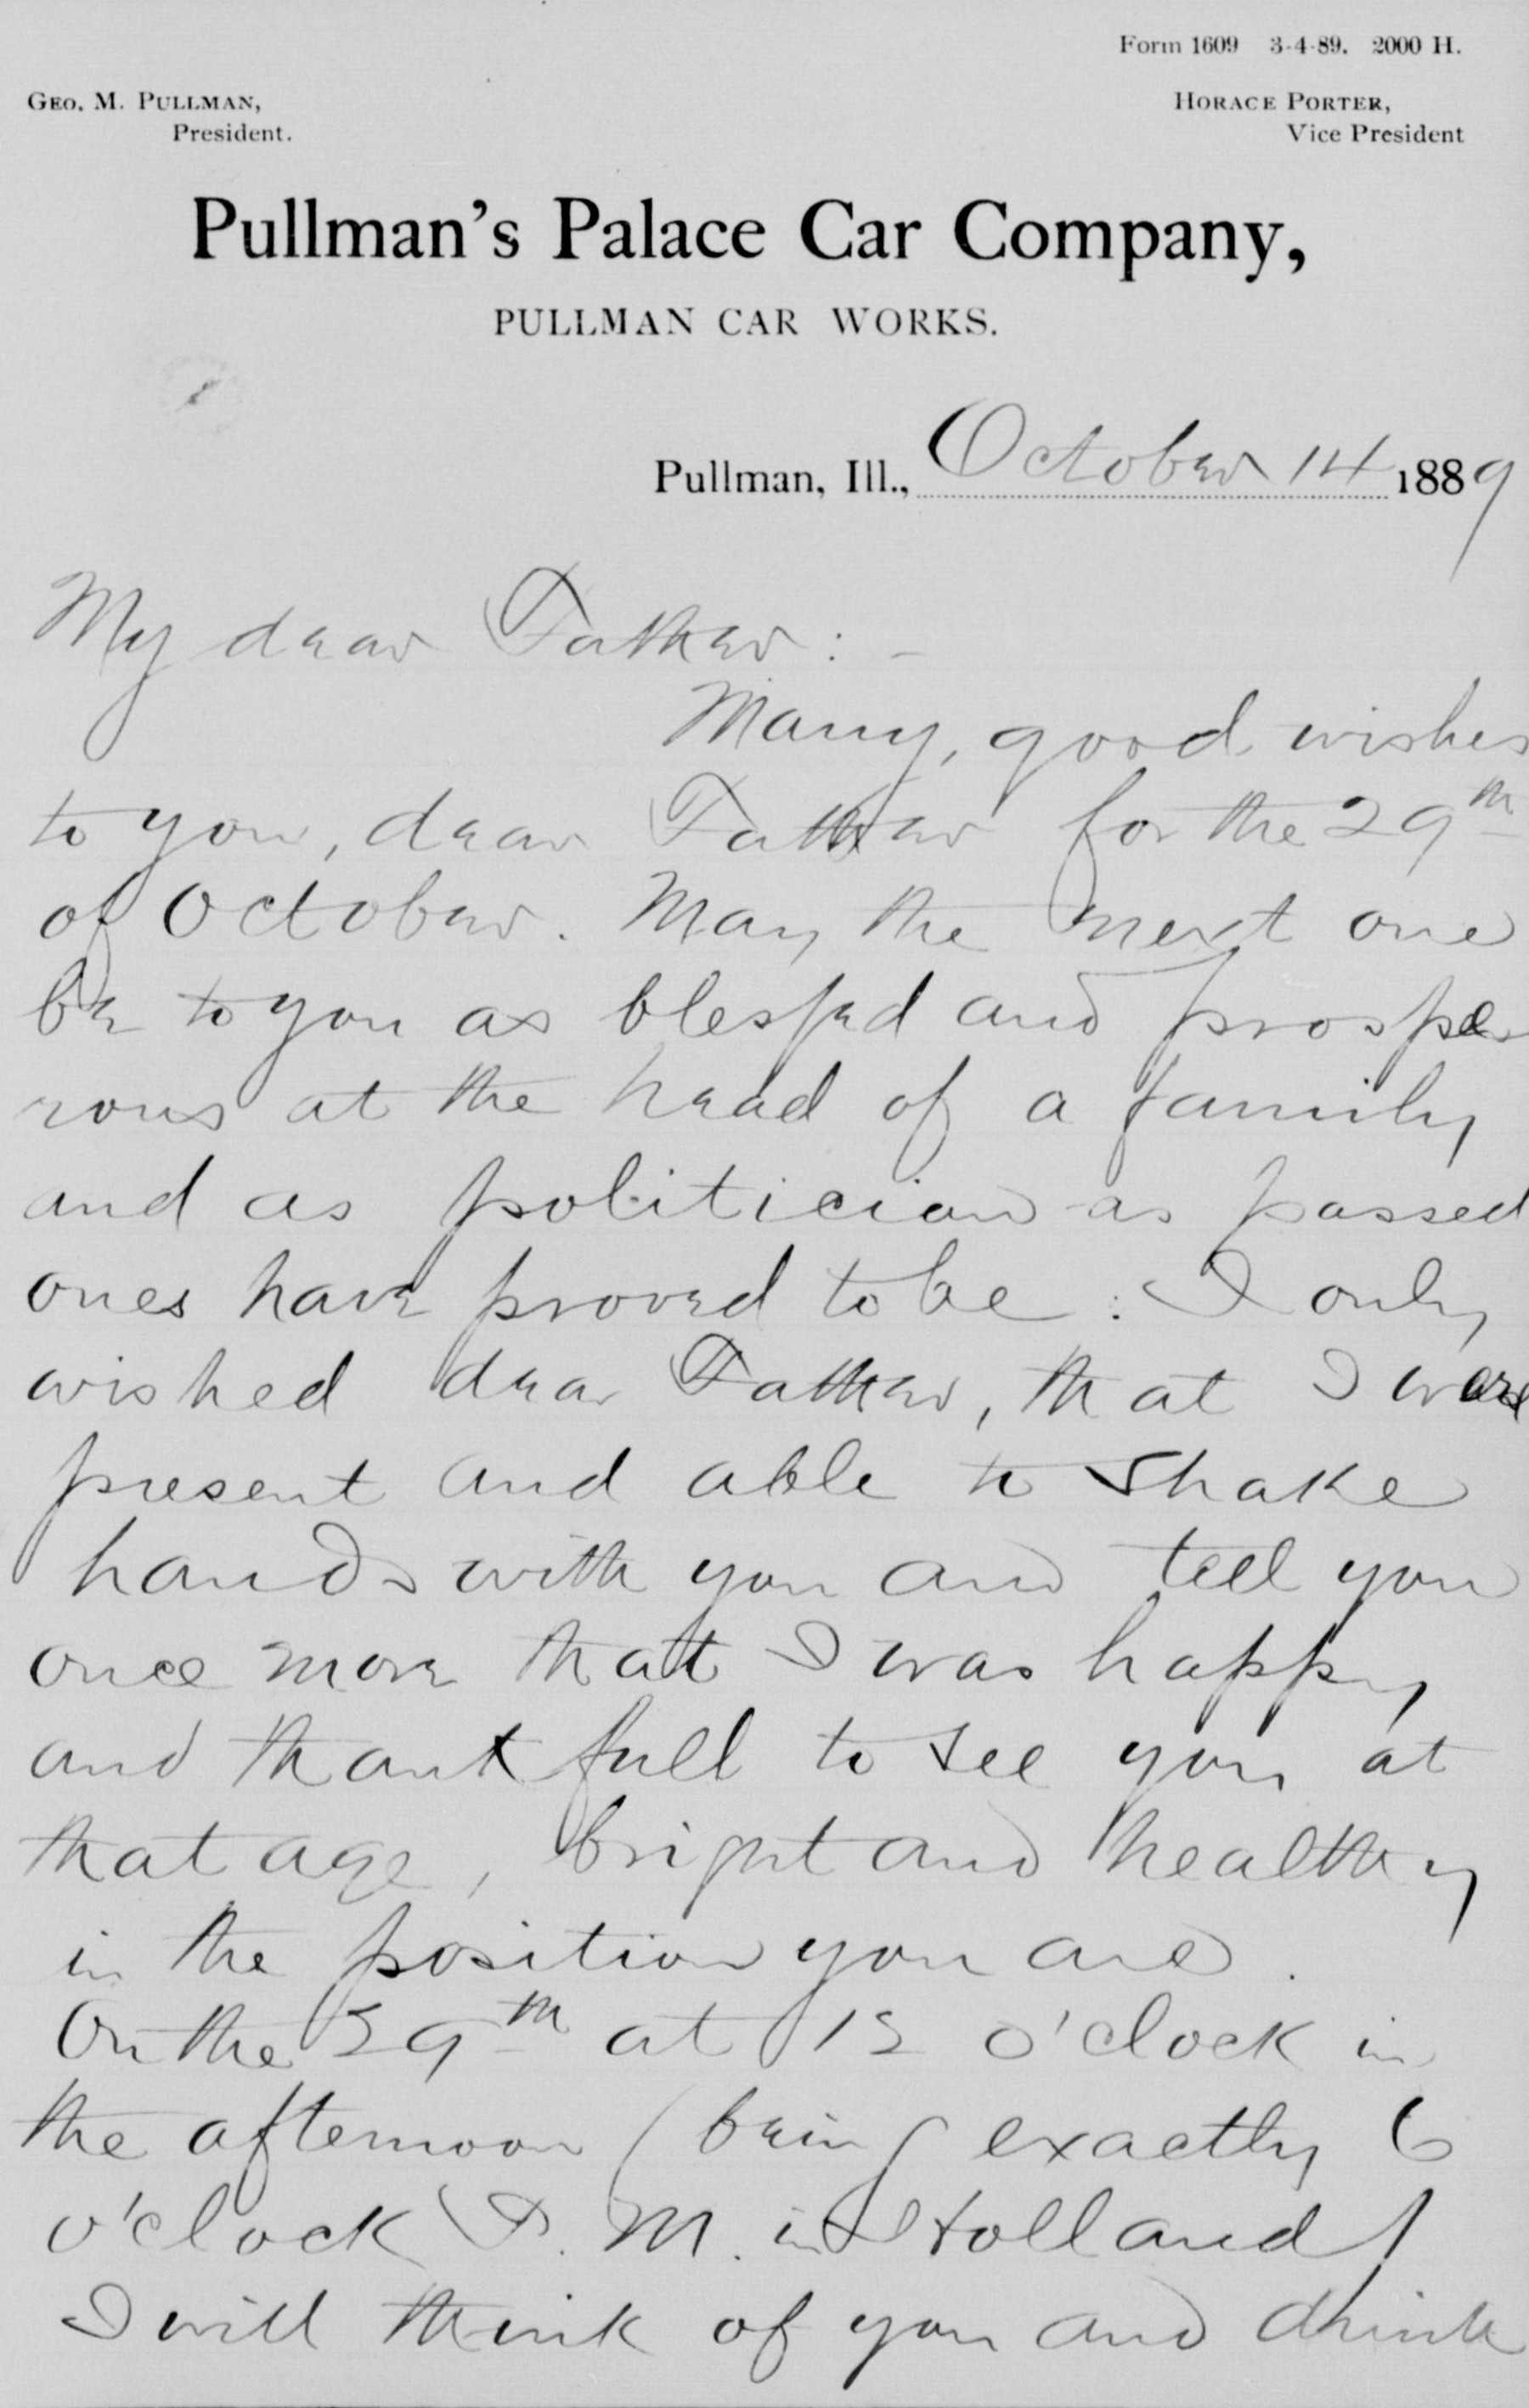 Form 1609 3-4-89. 2000 H.
GEO. M. PULLMAN,
President.
HORACE PORTER,
Vice President
Pullman's Palace Car Company,
PULLMAN CAR WORKS.
Pullman, Ill., October 14 1889
My dear Father: -
Many, good wishes
to you, dear Father for the 29th
of October. May the next one
be to you as blessed and prospe
rous at the head of a family
and as politician as passed
ones have proved to be: I only
wished dear Father, that I were
present and able to shake
hands with you and tell you
once more that I was happy
and thankfull to see you at
that age, bright and healthy
in the position you are.
On the 29th at 12 o'clock in
the afternoon (being exactly 6
o'clock P. M. in Holland)
I will think of you and drink